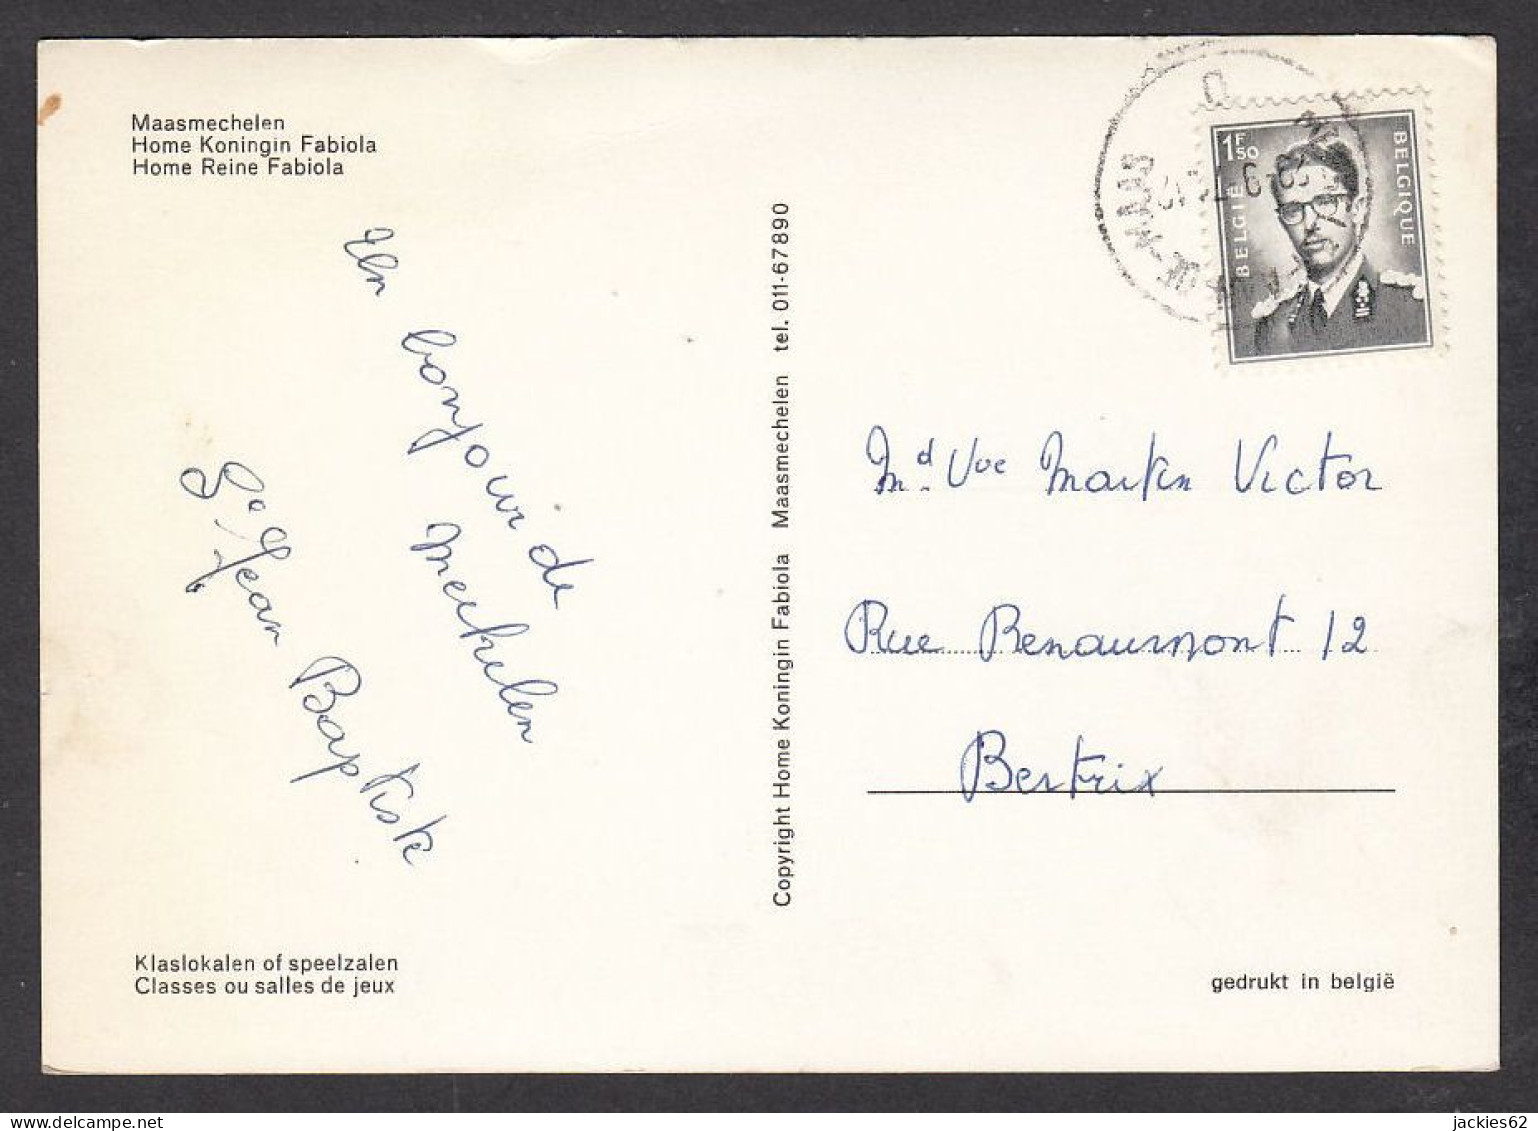 Maasmechelen
Home Koningin Fabiola
Home Reine Fabiola
Un bonjour de
Mechelen
Jean Baptiste
Klaslokalen of speelzalen
Classes ou salles de jeux
Copyright Home Koningin Fabiola Maasmechelen tel. 011-67890
1F50
BELGIË
BELGIQUE
MAAS
Md. Vve Martin Victor
Rue Renaumont 12
Bertrix
gedrukt in belgië
jackies62